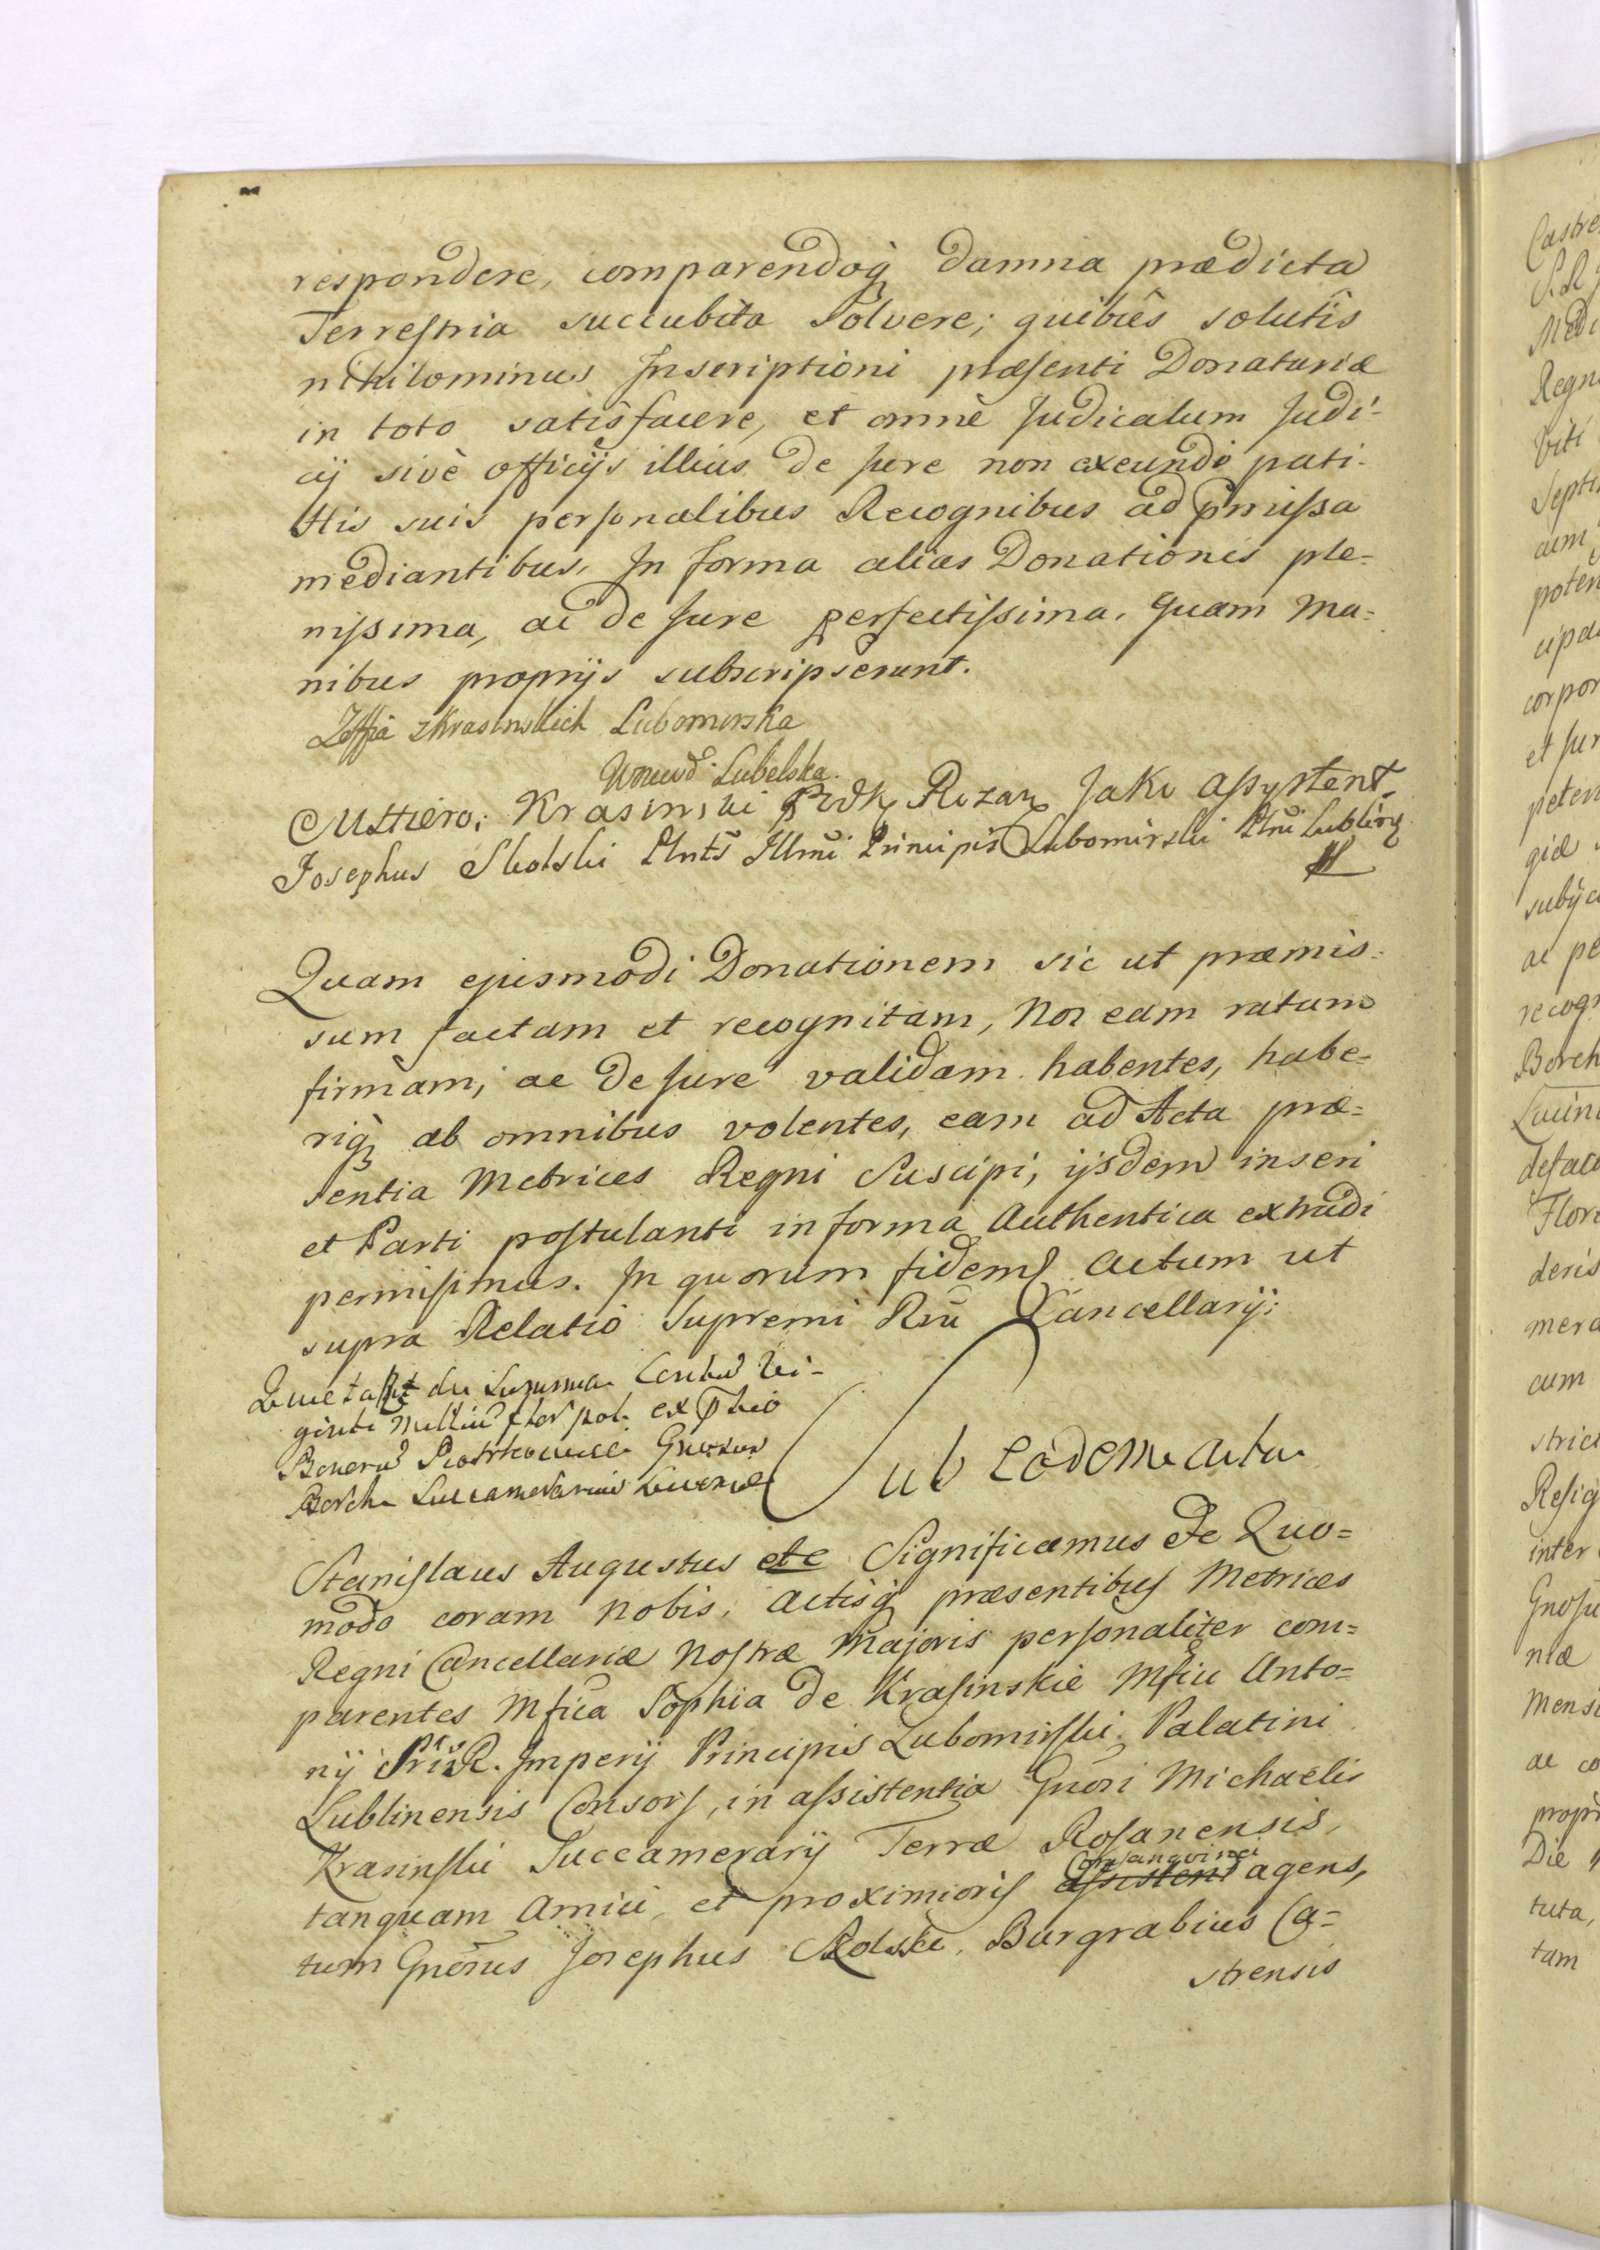 respondere, comparendoq̀ damna prædicta
Terreſtria succubita solvere; quibûs solutîs
nihilominus Inscriptioni præſenti Donatariæ
in toto satisfacere, et omnè Judicatum Judi-
cÿ sivè officÿs illius de Jure non exeundo pati.
His suis perſonalibus Recognibus ad p̃miſsa
mediantibus, In forma alias Donationis ple-
niſsima, ac de Jure perfectiſsima. Quam Ma-
nibus proprÿs subscripserunt.
Zoffia z Krasinskich Lubomirska
Woiewod: Lubelska.
Krasinski Rozan Jako aſsystent
Josephus Skolski Illmi Principis Lubomirski
Quam ejusmodi Donationem sic ut præmis-
sum factam et recognitam, Nos eam ratam
firmam, ac de Jure validam habentes, habe-
riq̀ ab omnibus volentes, eam ad Acta præ-
sentia Metrices Regni Suscipi, ijsdem inseri
et Parti poſtulanti in forma Authentica extradi
permiſimus. In quorum fidem Actum ut
supra Relatio Supremi Rñi Cancellarÿ:
Quietat du Summa Centu Vi-
ginti Milliu flor pol. ex
Boneru Piotrkowice Gnoso
Borch Succamerario Livoniæ
Sub eodem Actu
Staniſlaus Auguſtus etc Significamus etc Quo-
modo coram Nobis, Actisq̀ præsentibuſ Metrices
Regni Cancellariæ Noſtræ Majoris perſonaliter com-
parentes Mfica Sophia de Kraſinskie Mfici Anto-
nÿ S. R. Imperÿ Principis Lubomirſki Palatini
Lublinensis Conſorſ, in aſsistentia Gnosi Michaelis
Krasinſki Succamerarÿ Terræ Roſanensis,
tanquam Amici, et proximioriſ aſsistent Conſanguinei agens,
tum Gnosus Josephus Skolski, Burgrabius Ca-
strensis
Castre
S. R.
Medi
Regn
Viti
Septi
cim
poten
cipa
corpor
et Jur
peten
giæ
subijci
ac pe
recogn
Borch
Livin
defac
Flor
deris
mera
cum
strict
Reſig
inter
Gnoſu
niæ
Mensi
ac co
propr
Die
tuta,
tam